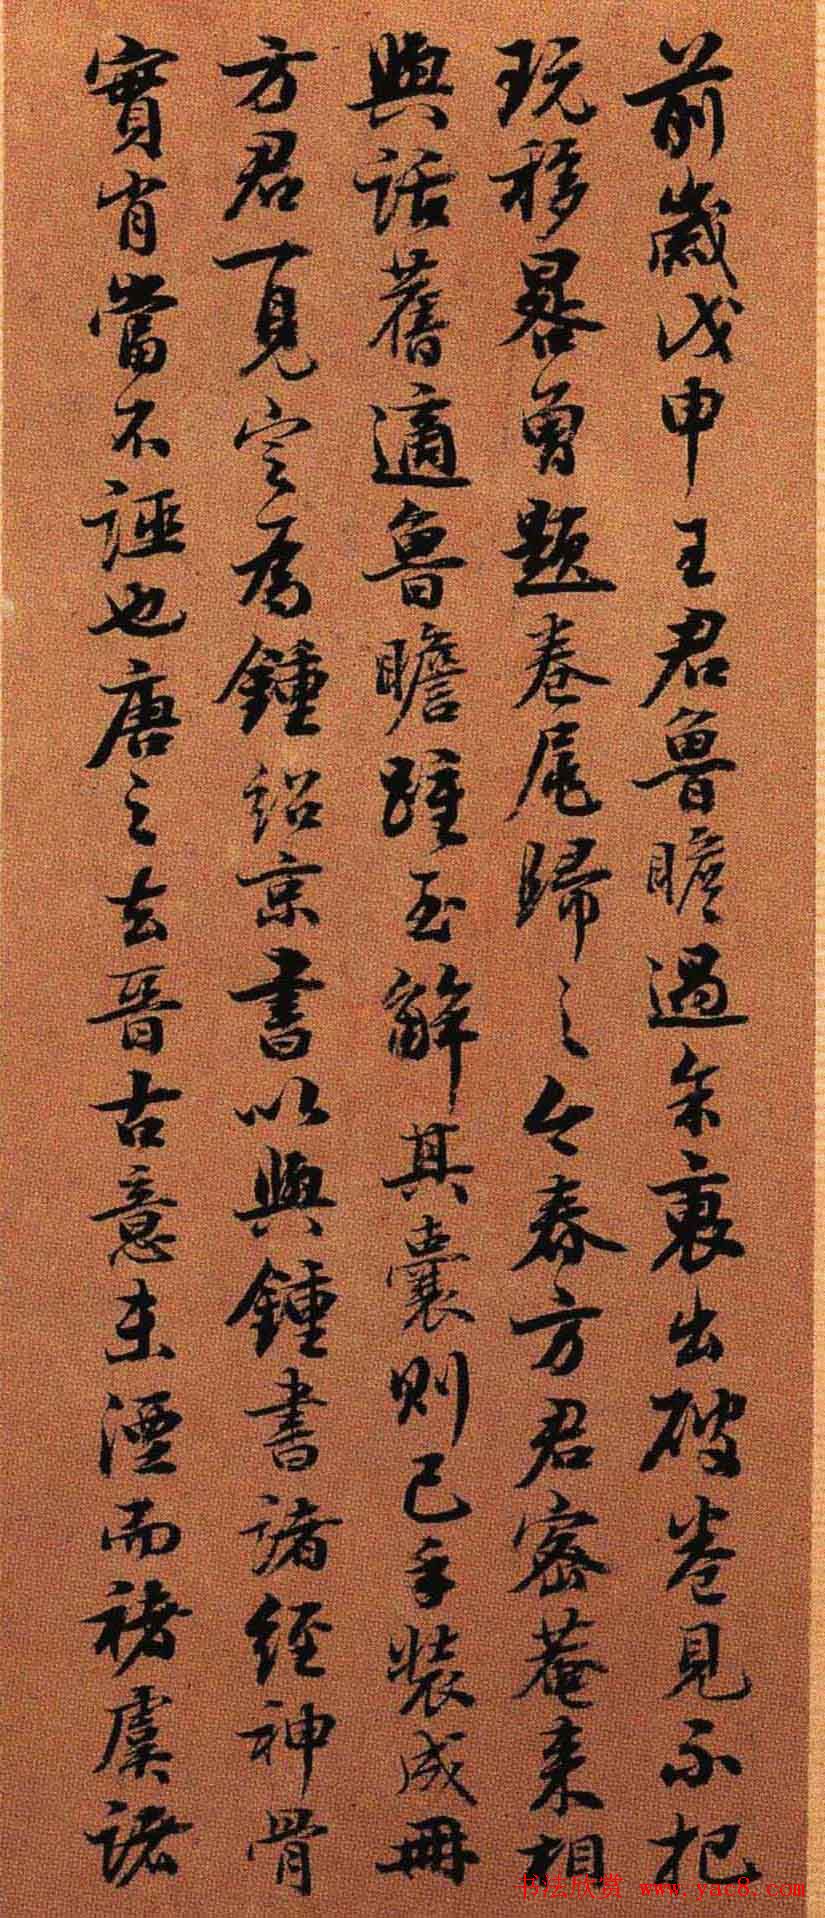 前歲戊申王君魯瞻過余裏出破卷見示把
玩移晷曾題卷尾歸之今春方君密菴来相
與話舊適魯瞻踵至解其囊則已手装成冊
方君一見定為鍾紹京書以與鍾書諸經神骨
實肖當不誣也唐之去晋古意未湮而褚虞諸
书法欣赏 www.yac8.com